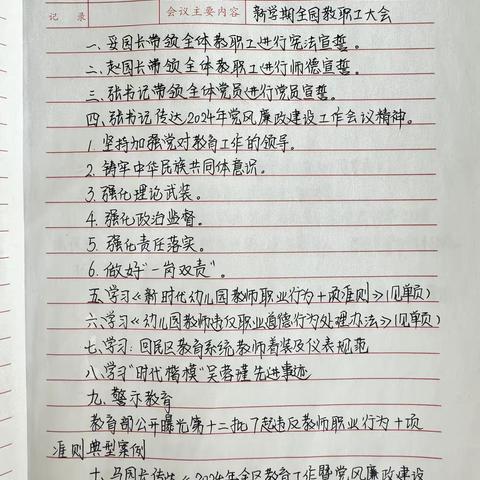 记 录 会议主要内容 新学期全园教职工大会
一、妥园长带领全体教职工进行宪法宣誓。
二、赵园长带领全体教职工进行师德宣誓。
三、张书记带领全体党员进行党员宣誓。
四、张书记传达2024年党风廉政建设工作会议精神。
1. 坚持加强党对教育工作的领导。
2. 铸牢中华民族共同体意识。
3. 强化理论武装。
4. 强化政治监督。
5. 强化责任落实。
6. 做好“一岗双责”。
五、学习《新时代幼儿园教师职业行为十项准则》(见单页)
六、学习《幼儿园教师违反职业道德行为处理办法》(见单页)
七、学习:回民区教育系统教师着装及仪表规范
八、学习“时代楷模”吴蓉瑾先进事迹
九、警示教育
教育部公开曝光第十二批7起违反教师职业行为十项
准则典型案例
十、马园长传达《2024年全区教育工作暨党风廉政建设